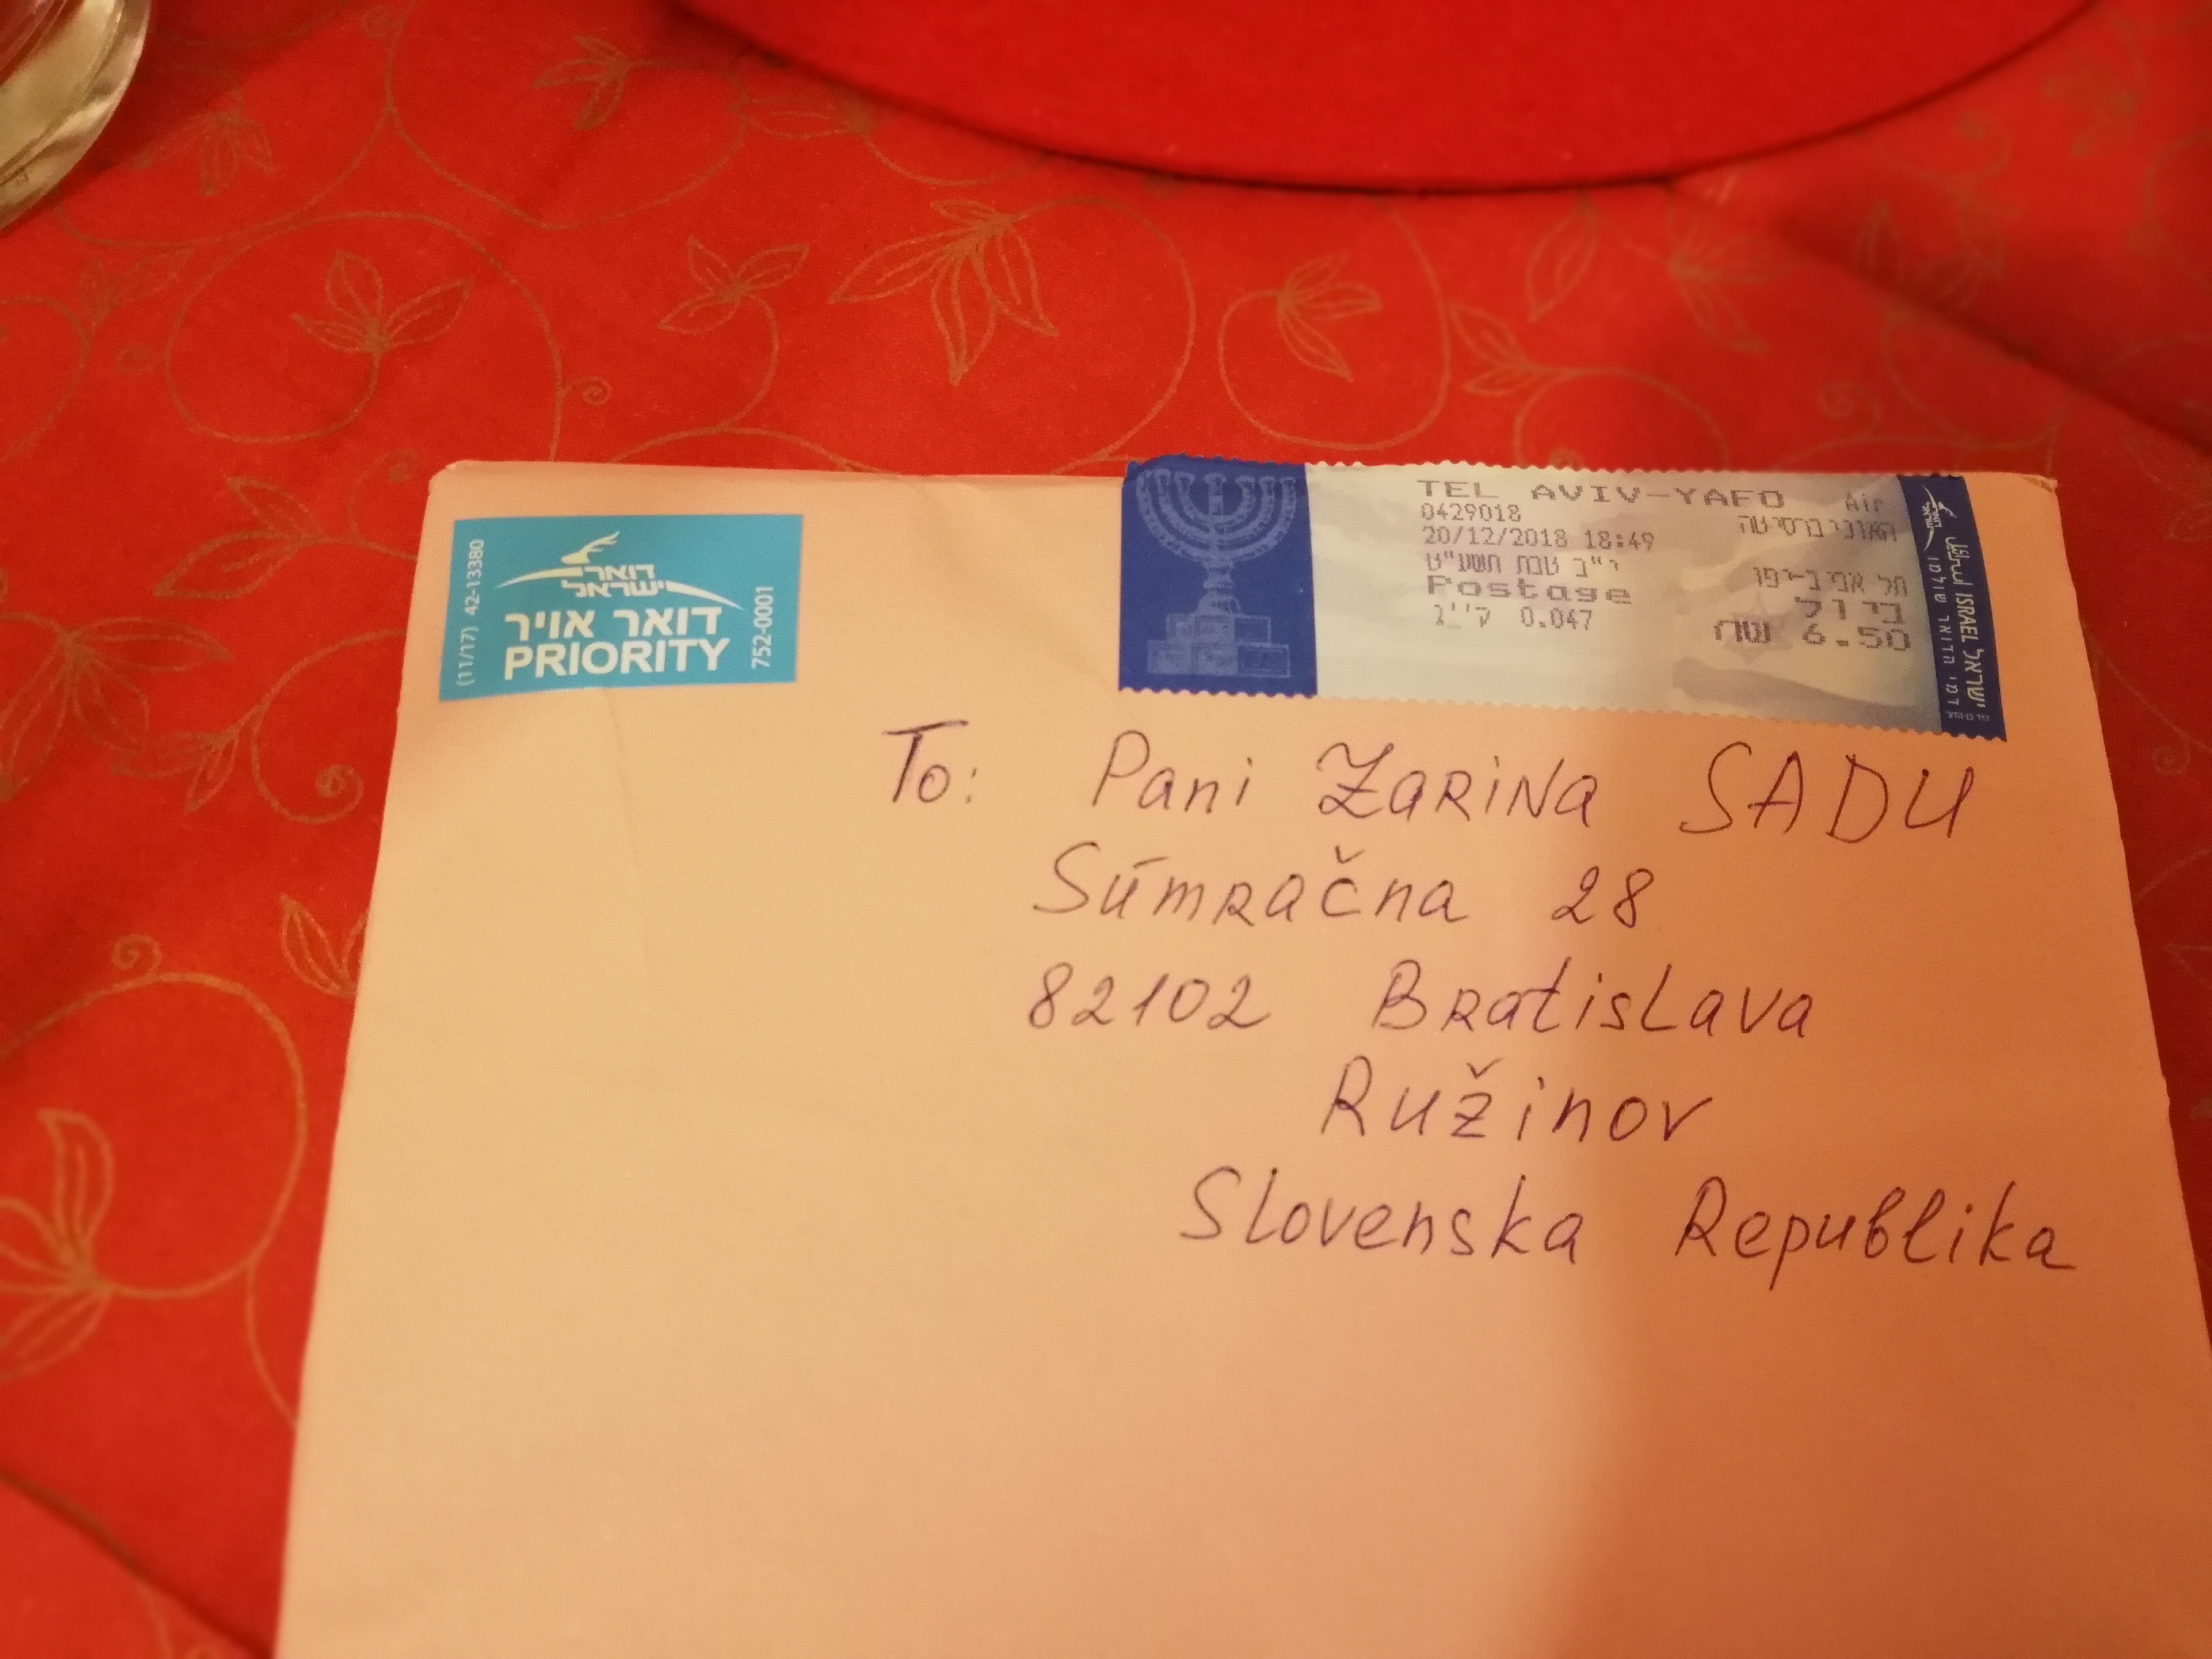 (11/17) 42-13380
דואר
ישראל
דואר אויר
PRIORITY
752-0001
TEL AVIV-YAFO Air
0429018 האוניברסיטה
20/12/2018 18:49
י"ב טבת תשע"ט
תל אביב-יפו
Postage בי ול
ק''ג 0.047
6.50 שח
ישראל ISRAEL
דמי הדואר שולמו
To: Pani Zarina SADU
Súmračna 28
82102 Bratislava
Ružinov
Slovenska Republika